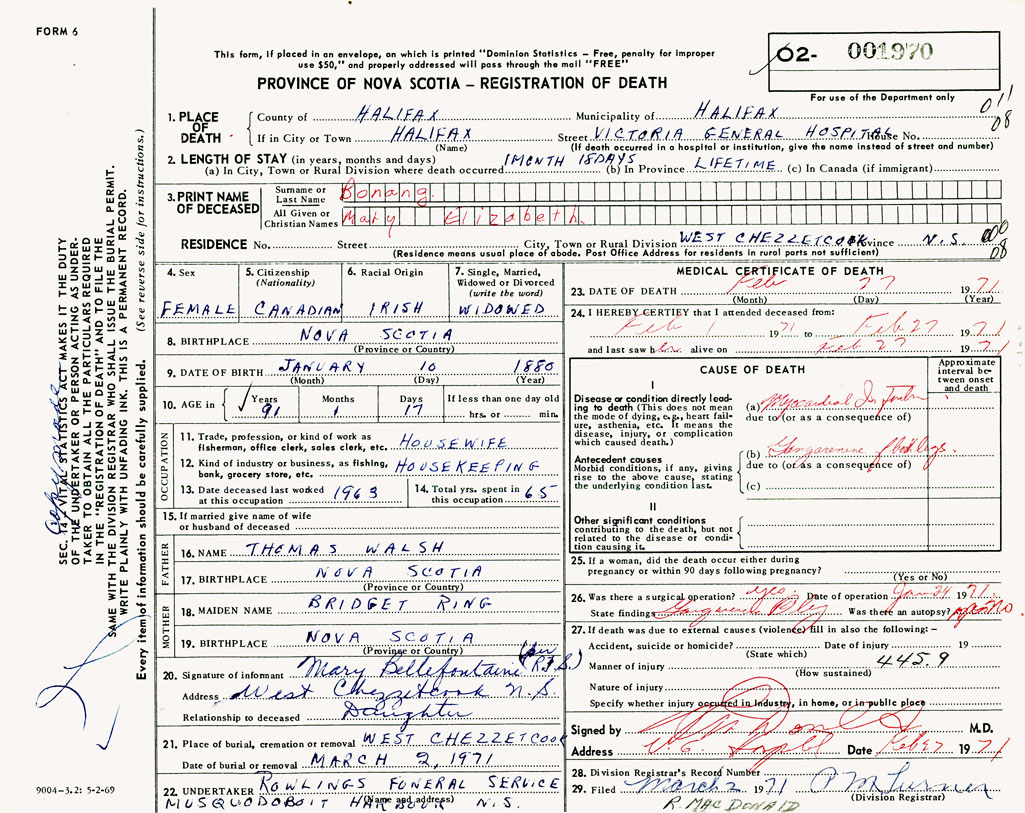 FORM 6
This form, if placed in an envelope, on which is printed "Dominion Statistics – Free, penalty for improper
use $50," and properly addressed will pass through the mail "FREE"
PROVINCE OF NOVA SCOTIA – REGISTRATION OF DEATH
02- 001970
For use of the Department only
011
08
1. PLACE OF DEATH
County of HALIFAX Municipality of HALIFAX
If in City or Town HALIFAX Street VICTORIA GENERAL HOSPITAL House No.
(Name) (If death occurred in a hospital or institution, give the name instead of street and number)
2. LENGTH OF STAY (in years, months and days)
(a) In City, Town or Rural Division where death occurred 1 MONTH 18 DAYS (b) In Province LIFETIME (c) In Canada (if immigrant)
3. PRINT NAME OF DECEASED
Surname or Last Name Bonang.
All Given or Christian Names Mary Elizabeth.
RESIDENCE No. Street City, Town or Rural Division WEST CHEZZETCOOK Province N.S. 000
08
(Residence means usual place of abode. Post Office Address for residents in rural parts not sufficient)
4. Sex
FEMALE
5. Citizenship
(Nationality)
CANADIAN
6. Racial Origin
IRISH
7. Single, Married,
Widowed or Divorced
(write the word)
WIDOWED
8. BIRTHPLACE NOVA SCOTIA
(Province or Country)
9. DATE OF BIRTH JANUARY 10 1880
(Month) (Day) (Year)
10. AGE in Years Months Days If less than one day old
91 1 17 hrs. or min.
OCCUPATION
11. Trade, profession, or kind of work as
fisherman, office clerk, sales clerk, etc. HOUSEWIFE
12. Kind of industry or business, as fishing,
bank, grocery store, etc. HOUSEKEEPING
13. Date deceased last worked
at this occupation 1963
14. Total yrs. spent in
this occupation 65
15. If married give name of wife
or husband of deceased
FATHER
16. NAME THOMAS WALSH
17. BIRTHPLACE NOVA SCOTIA
(Province or Country)
MOTHER
18. MAIDEN NAME BRIDGET RING
19. BIRTHPLACE NOVA SCOTIA
(Province or Country)
20. Signature of informant Mary Bellefontaine (per R.F.S)
Address West Chezzetcook N.S.
Relationship to deceased Daughter
21. Place of burial, cremation or removal WEST CHEZZETCOOK
Date of burial or removal MARCH 2, 1971
22. UNDERTAKER ROWLINGS FUNERAL SERVICE
(Name and address)
MUSQUODOBOIT HARBOUR N.S.
MEDICAL CERTIFICATE OF DEATH
23. DATE OF DEATH Feb 27 1971
(Month) (Day) (Year)
24. I HEREBY CERTIFY that I attended deceased from:
Feb 1 1971 to Feb 27 1971
and last saw her alive on Feb 27 1971
CAUSE OF DEATH
Approximate
interval be-
tween onset
and death
I
Disease or condition directly lead-
ing to death (This does not mean
the mode of dying, e.g., heart fail-
ure, asthenia, etc. It means the
disease, injury, or complication
which caused death.)
(a) Myocardial Infarction
due to (or as a consequence of)
Antecedent causes
Morbid conditions, if any, giving
rise to the above cause, stating
the underlying condition last.
(b) Gangrene of both legs.
due to (or as a consequence of)
(c)
II
Other significant conditions
contributing to the death, but not
related to the disease or condi-
tion causing it.
25. If a woman, did the death occur either during
pregnancy or within 90 days following pregnancy?
(Yes or No)
26. Was there a surgical operation? yes. Date of operation Jan 24 1971
State findings Was there an autopsy? No.
27. If death was due to external causes (violence) fill in also the following: –
Accident, suicide or homicide? Date of injury 19
(State which)
Manner of injury 445.9
(How sustained)
Nature of injury
Specify whether injury occurred in industry, in home, or in public place
Signed by M.D.
Address Date Feb 27 1971
28. Division Registrar's Record Number
29. Filed March 2 1971 P M Turner
(Division Registrar)
R. MACDONALD
9004-3.2: 5-2-69
SEC. 14 VITAL STATISTICS ACT MAKES IT THE DUTY
OF THE UNDERTAKER OR PERSON ACTING AS UNDER-
TAKER TO OBTAIN ALL THE PARTICULARS REQUIRED
IN THE "REGISTRATION OF DEATH" AND TO FILE THE
SAME WITH THE DIVISION REGISTRAR WHO SHALL ISSUE THE BURIAL PERMIT.
WRITE PLAINLY WITH UNFADING INK. THIS IS A PERMANENT RECORD.
Every item of information should be carefully supplied. (See reverse side for instructions.)